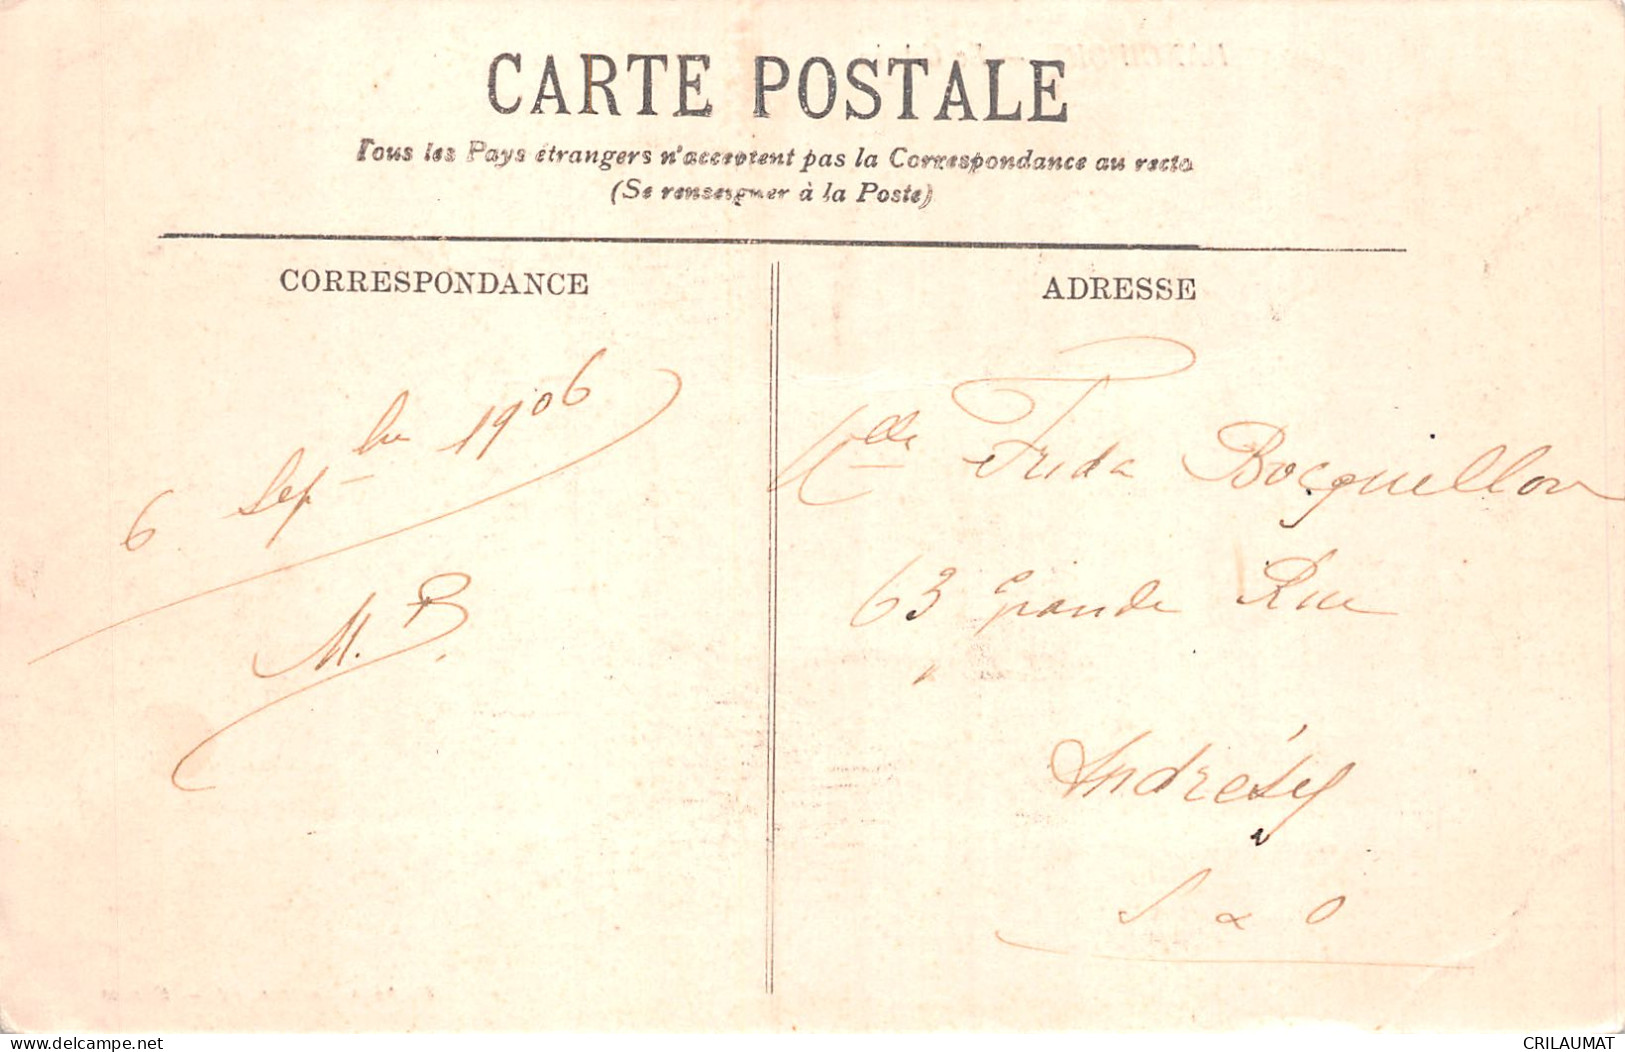 CARTE POSTALE
Tous les Pays étrangers n'acceptent pas la Correspondance au recto
(Se renseigner à la Poste)
CORRESPONDANCE
6 Sepbre 1906
M. B.
ADRESSE
Mlle Frida Bocquillon
63 Grande Rue
Andrésy
S & O
www.delcampe.net
CRILAUMAT